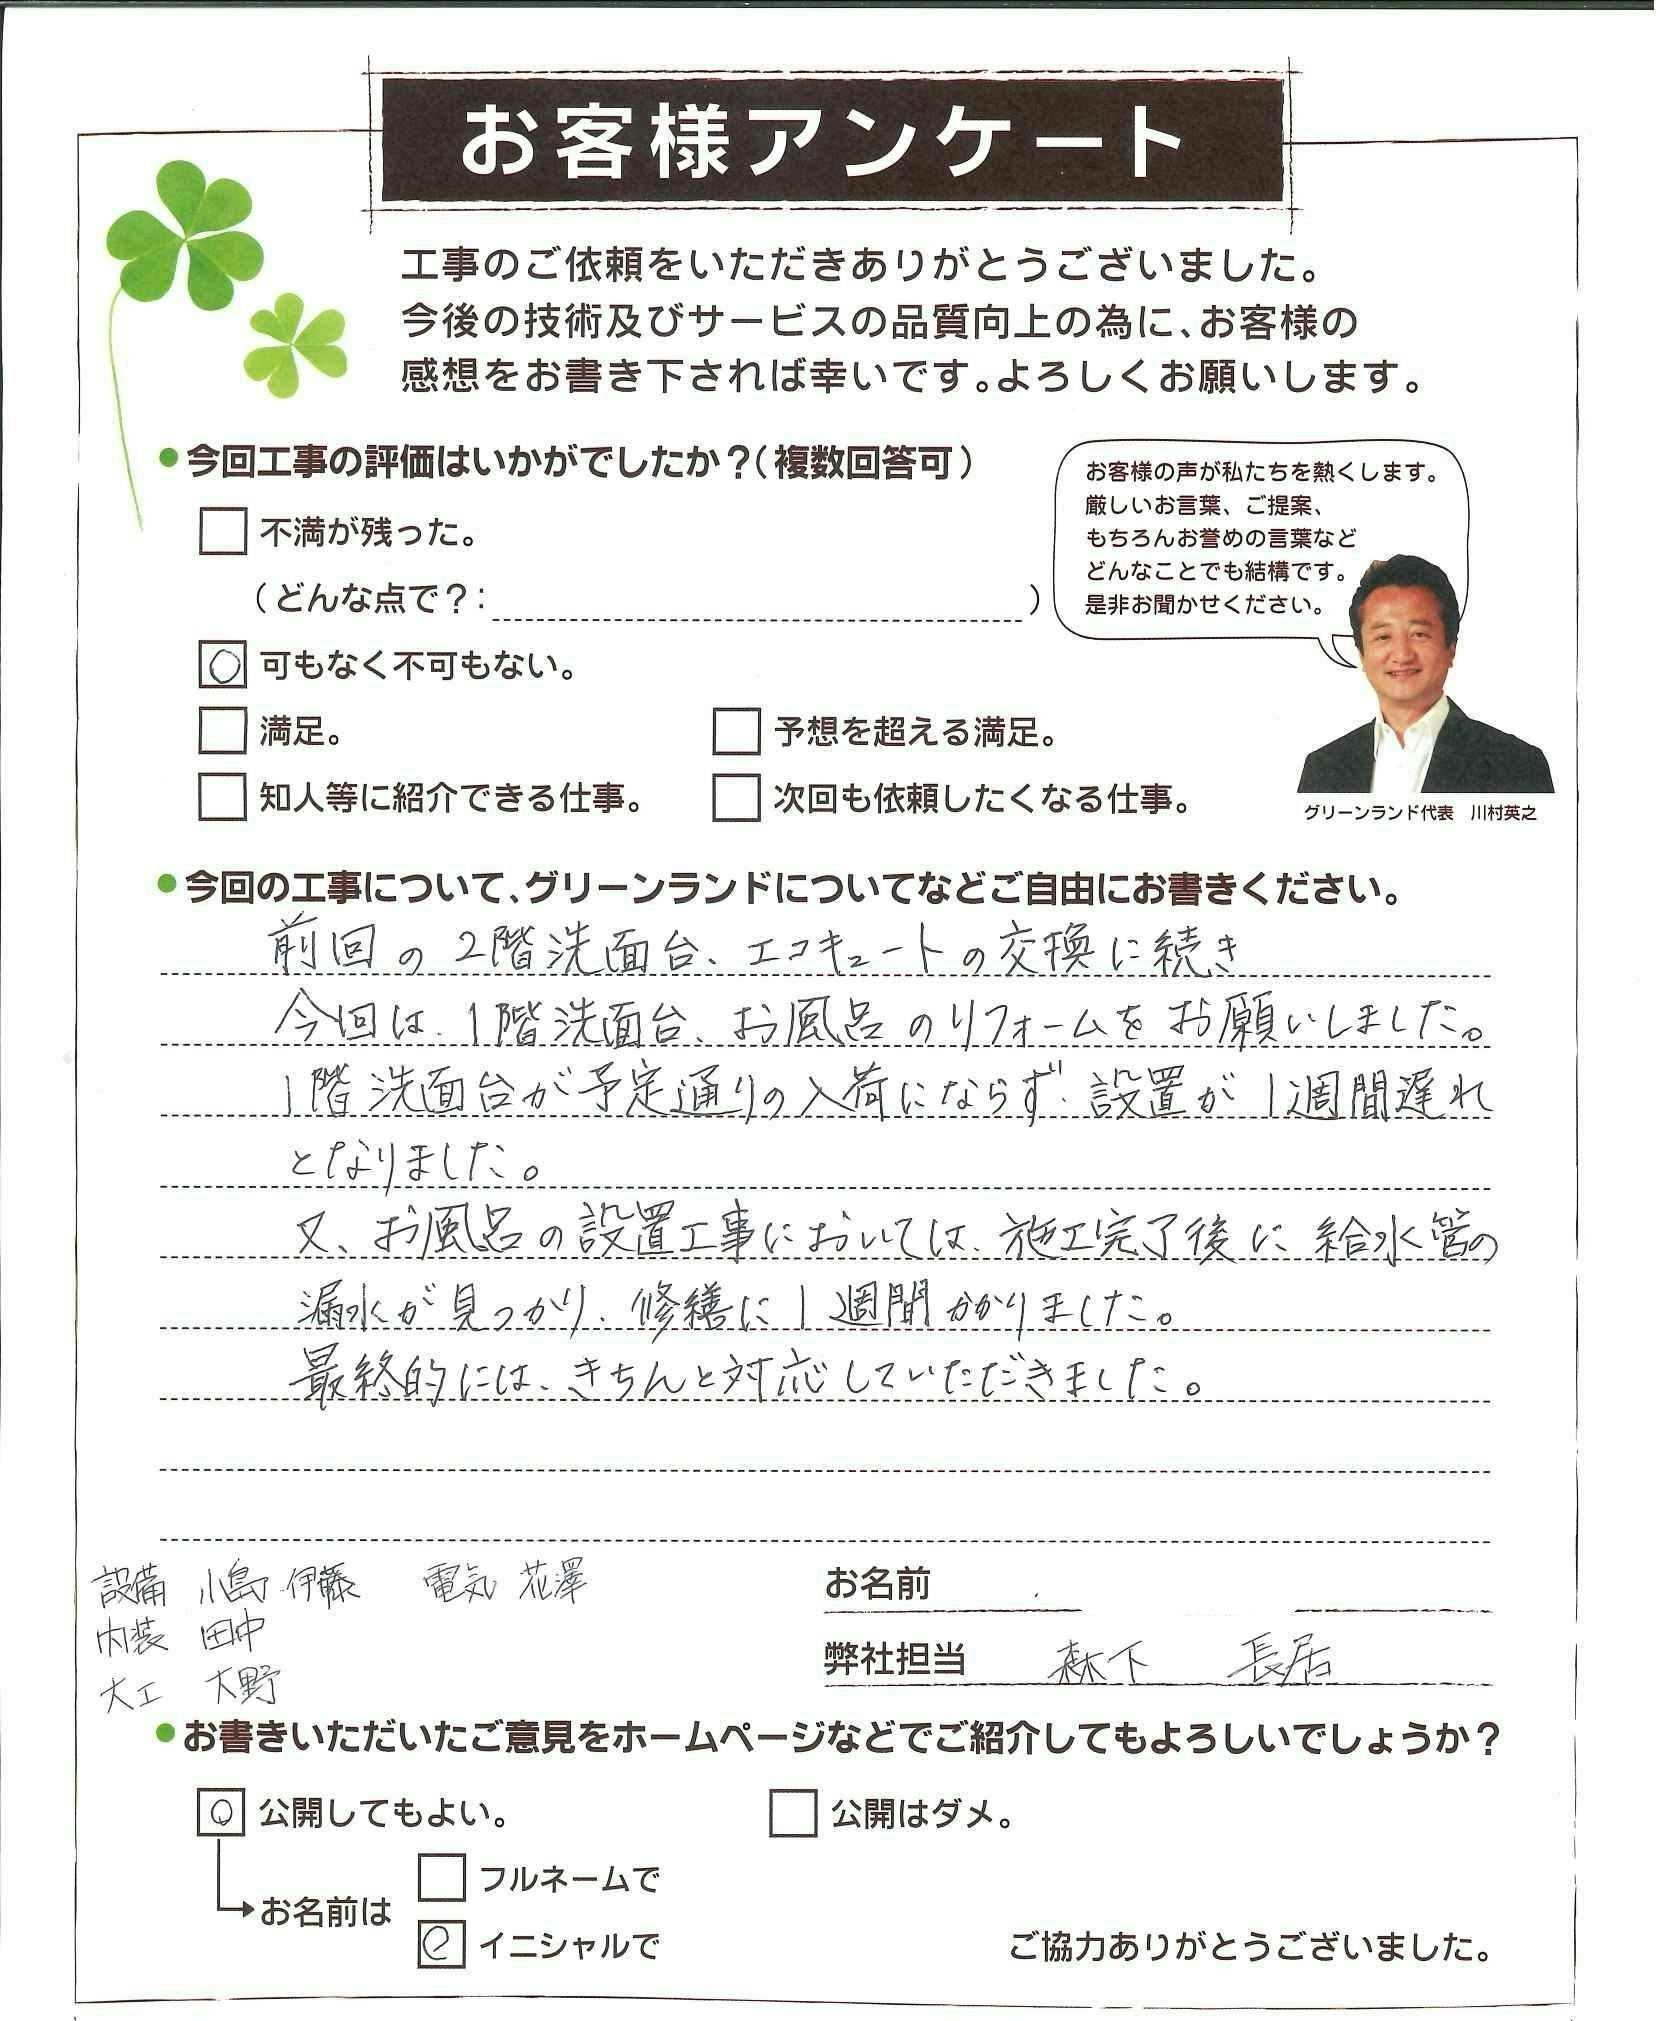 お客様アンケート
工事のご依頼をいただきありがとうございました。
今後の技術及びサービスの品質向上の為に、お客様の
感想をお書き下されば幸いです。よろしくお願いします。
●今回工事の評価はいかがでしたか？（複数回答可）
お客様の声が私たちを熱くします。
厳しいお言葉、ご提案、
もちろんお誉めの言葉など
どんなことでも結構です。
是非お聞かせください。
不満が残った。
（どんな点で？：　）
○ 可もなく不可もない。
満足。
予想を超える満足。
知人等に紹介できる仕事。
次回も依頼したくなる仕事。
グリーンランド代表　川村英之
●今回の工事について、グリーンランドについてなどご自由にお書きください。
前回の2階洗面台、エコキュートの交換に続き
今回は、1階洗面台、お風呂のリフォームをお願いしました。
1階洗面台が予定通りの入荷にならず、設置が1週間遅れ
となりました。
又、お風呂の設置工事においては、施工完了後に給水管の
漏水が見つかり、修繕に1週間かかりました。
最終的には、きちんと対応していただきました。
設備 小島 伊藤 電気 花澤
内装 田中
大工 大野
お名前
弊社担当 森下 長居
●お書きいただいたご意見をホームページなどでご紹介してもよろしいでしょうか？
○ 公開してもよい。
公開はダメ。
お名前は
フルネームで
○ イニシャルで
ご協力ありがとうございました。